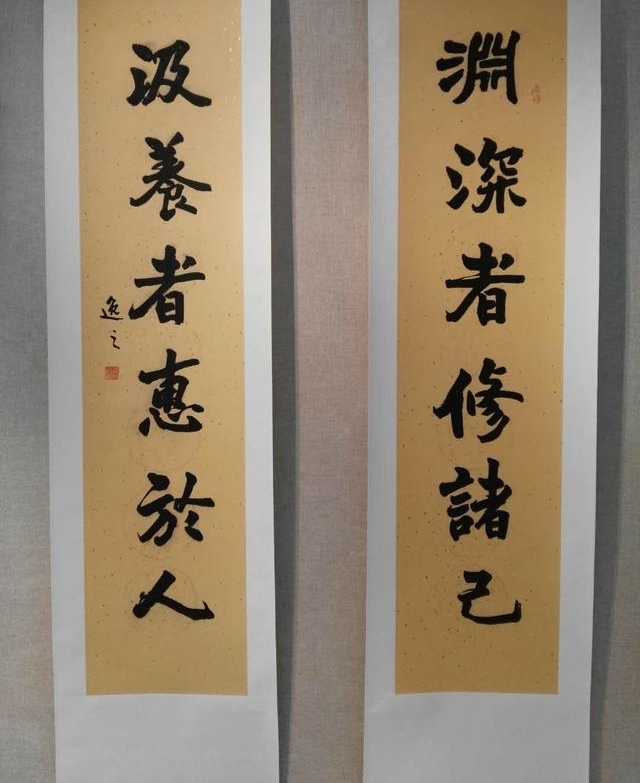 淵深者修諸己
汲養者惠於人
逸之